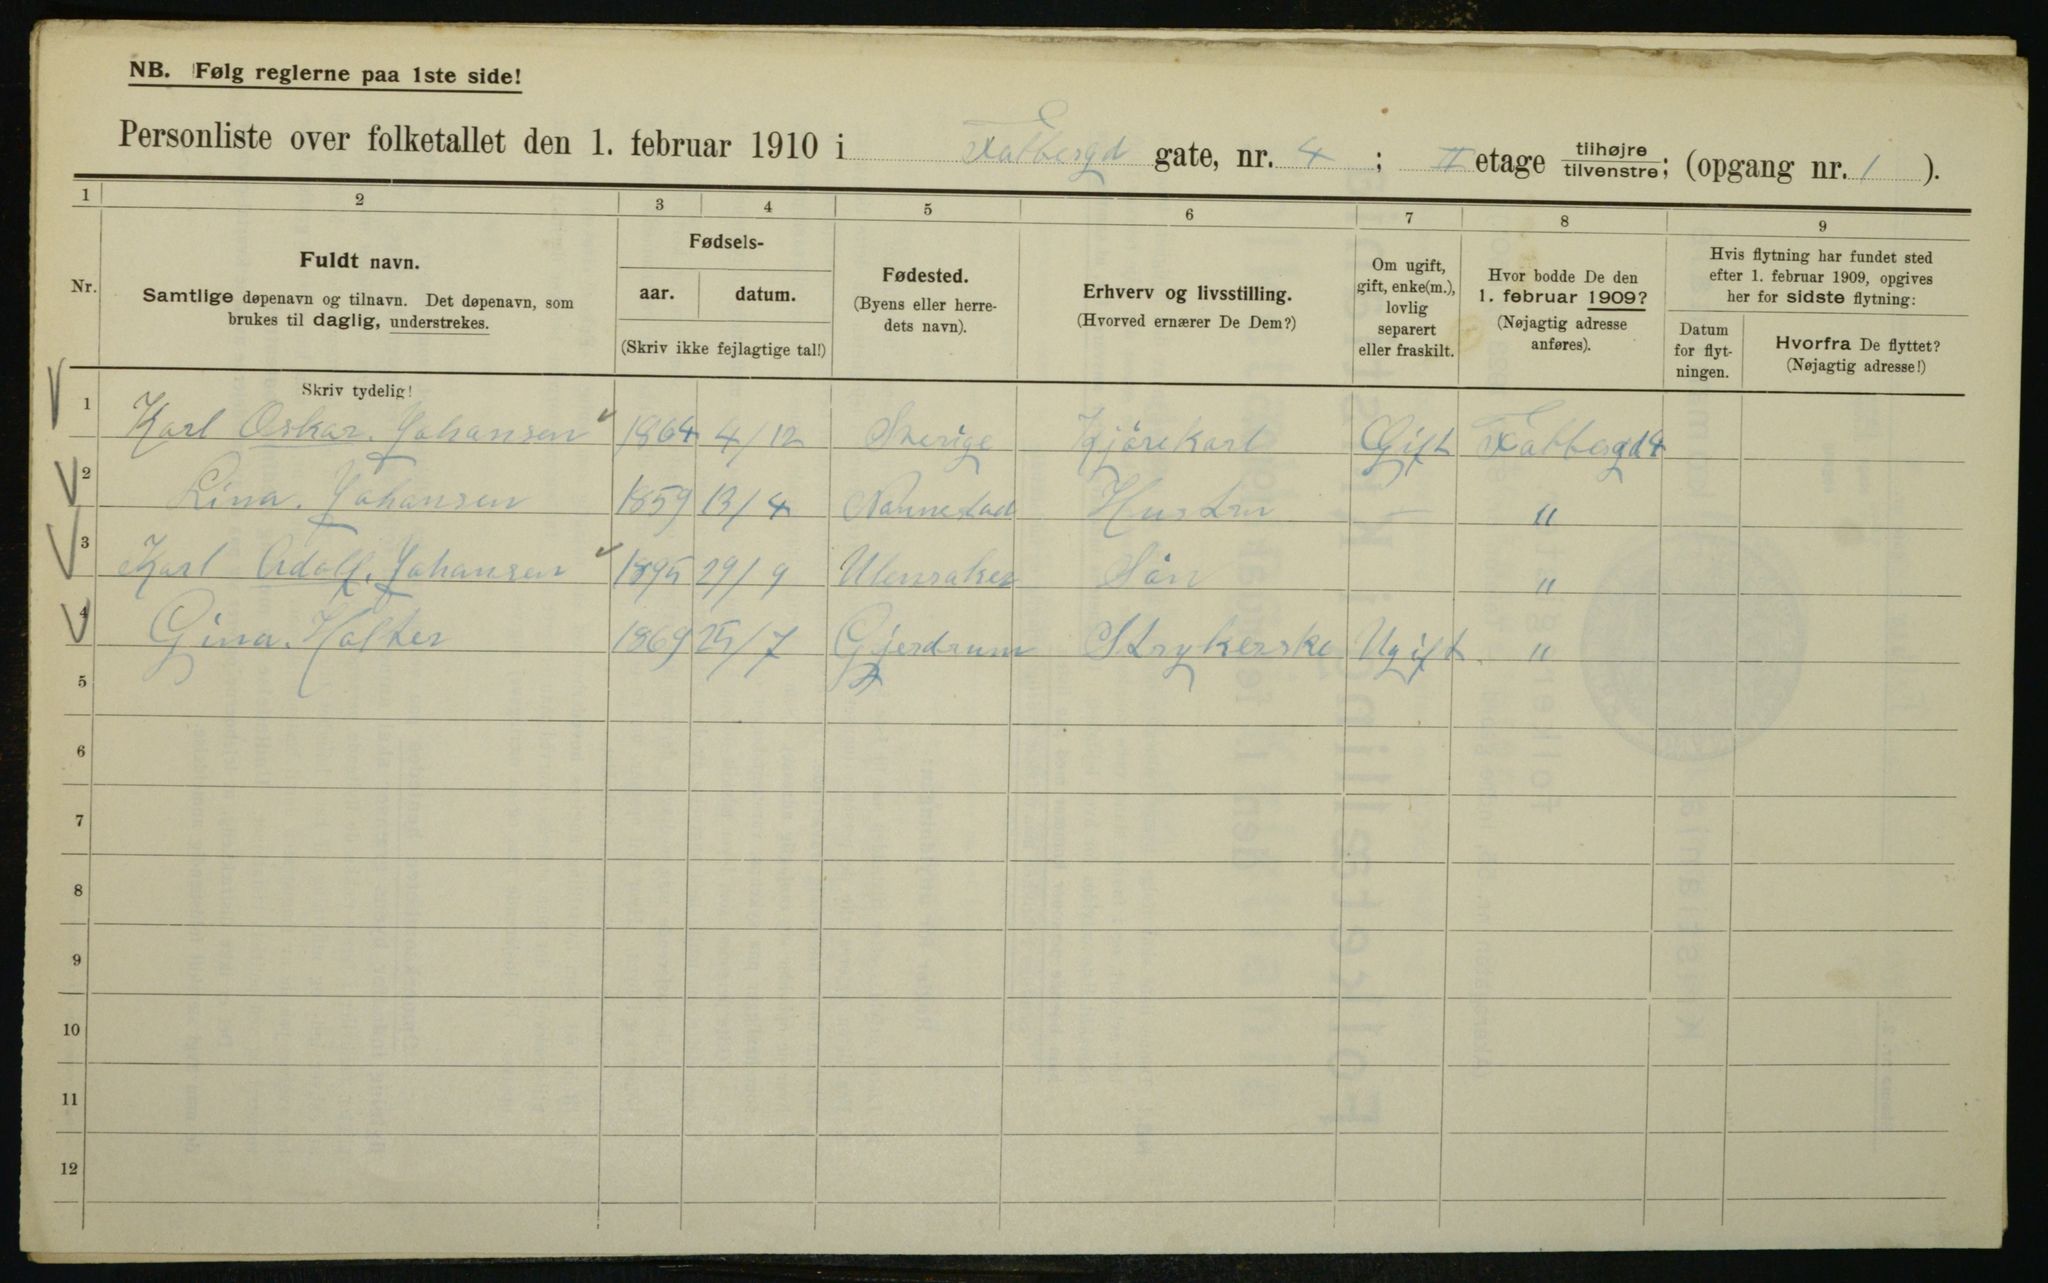 NB. Følg reglerne paa 1ste side!
Personliste over folketallet den 1. februar 1910 i Falbergd gate, nr. 4 ; II etage tilhøjre/tilvenstre; (opgang nr. 1 ).
1 2 3 4 5 6 7 8 9
Nr.
Fuldt navn.
Samtlige døpenavn og tilnavn. Det døpenavn, som
brukes til daglig, understrekes.
Skriv tydelig!
Fødsels-
aar. datum.
(Skriv ikke fejlagtige tal!)
Fødested.
(Byens eller herre-
dets navn).
Erhverv og livsstilling.
(Hvorved ernærer De Dem?)
Om ugift,
gift, enke(m.),
lovlig
separert
eller fraskilt.
Hvor bodde De den
1. februar 1909?
(Nøjagtig adresse
anføres).
Hvis flytning har fundet sted
efter 1. februar 1909, opgives
her for sidste flytning:
Datum
for flyt-
ningen.
Hvorfra De flyttet?
(Nøjagtig adresse!)
1 Karl Oskar. Johansen 1864 4/12 Sverige Kjörekarl Gift Falbergd 4
2 Lina. Johansen 1859 13/4 Nannestad Hustru — "
3 Karl Adolf. Johansen 1895 29/9 Ulensaker Sön "
4 Gina. Holter 1869 25/7 Gjerdrum Strykerske Ugift "
5
6
7
8
9
10
11
12